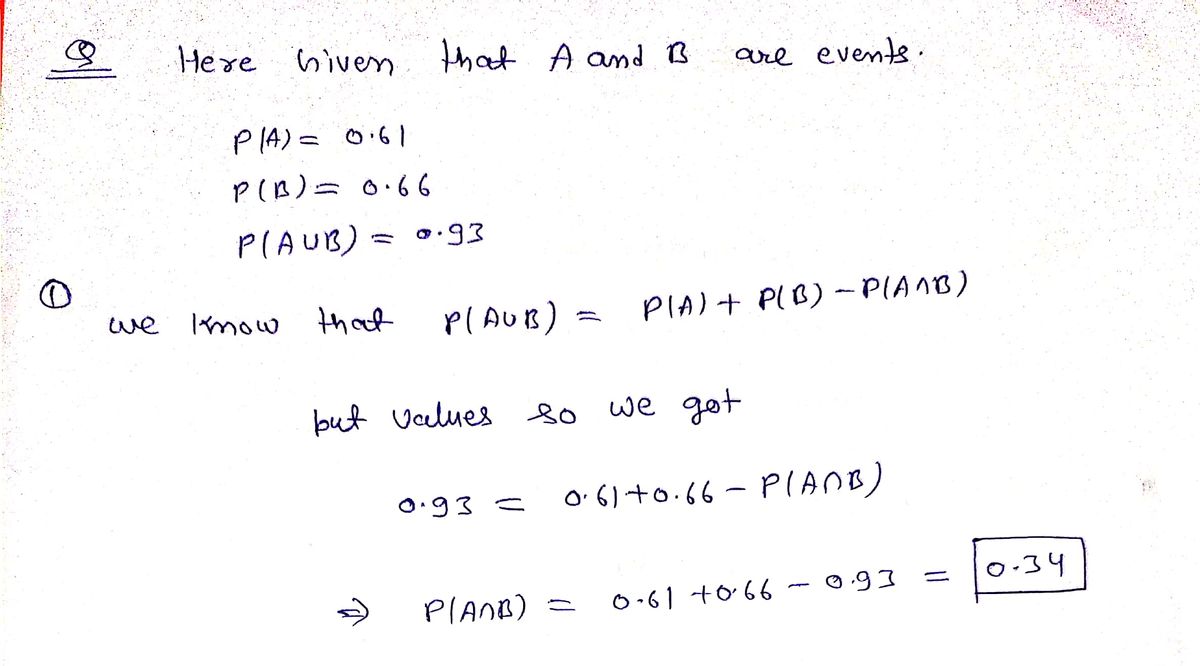 Q Here Given that A and B are events.
P(A) = 0.61
P(B) = 0.66
P(A∪B) = 0.93
① we know that P(A∪B) = P(A) + P(B) - P(A∩B)
but values so we get
0.93 = 0.61 + 0.66 - P(A∩B)
⇒ P(A∩B) = 0.61 + 0.66 - 0.93 = 0.34